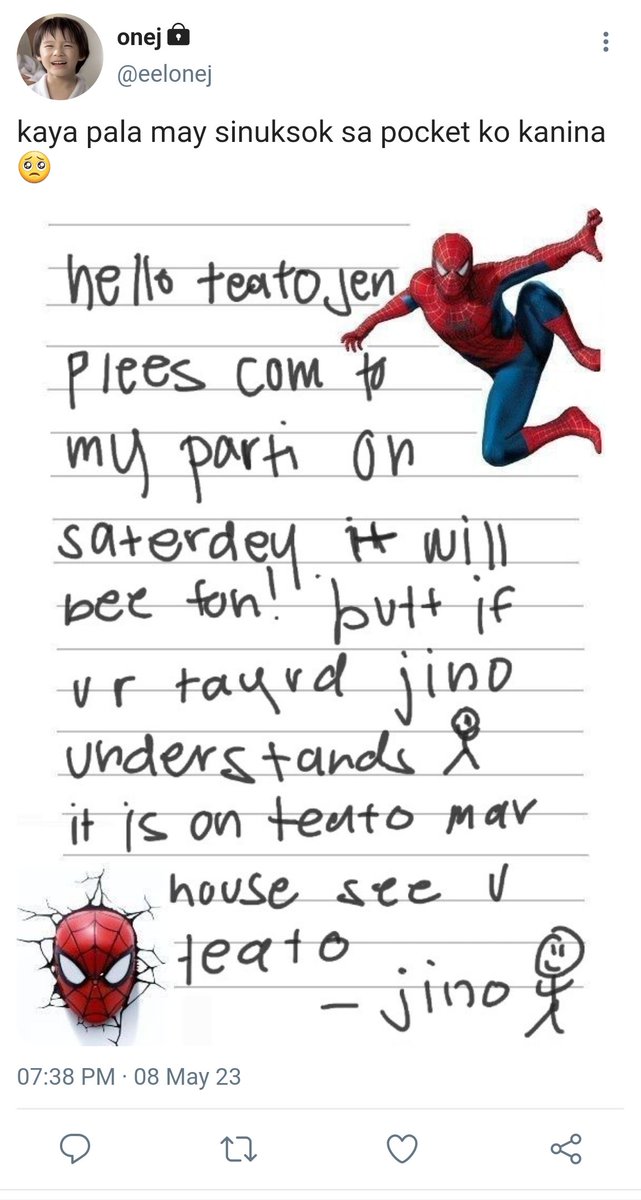 onej
@eelonej
kaya pala may sinuksok sa pocket ko kanina
hello teato jen
Plees com to
my parti on
saterdey. it will
bee fon!! butt if
ur tayrd jino
understands
it is on teato mar
house see u
teato
- jino
07:38 PM · 08 May 23